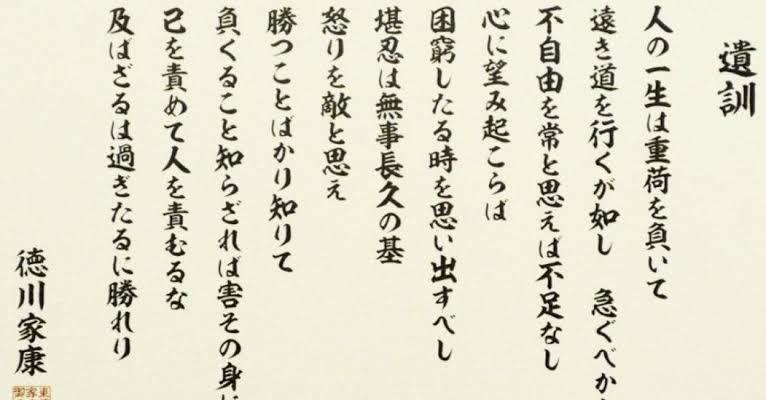 遺訓
人の一生は重荷を負いて
遠き道を行くが如し 急ぐべか
不自由を常と思えば不足なし
心に望み起こらば
困窮したる時を思い出すべし
堪忍は無事長久の基
怒りを敵と思え
勝つことばかり知りて
負くること知らざれば害その身に
己を責めて人を責むるな
及ばざるは過ぎたるに勝れり
徳川家康